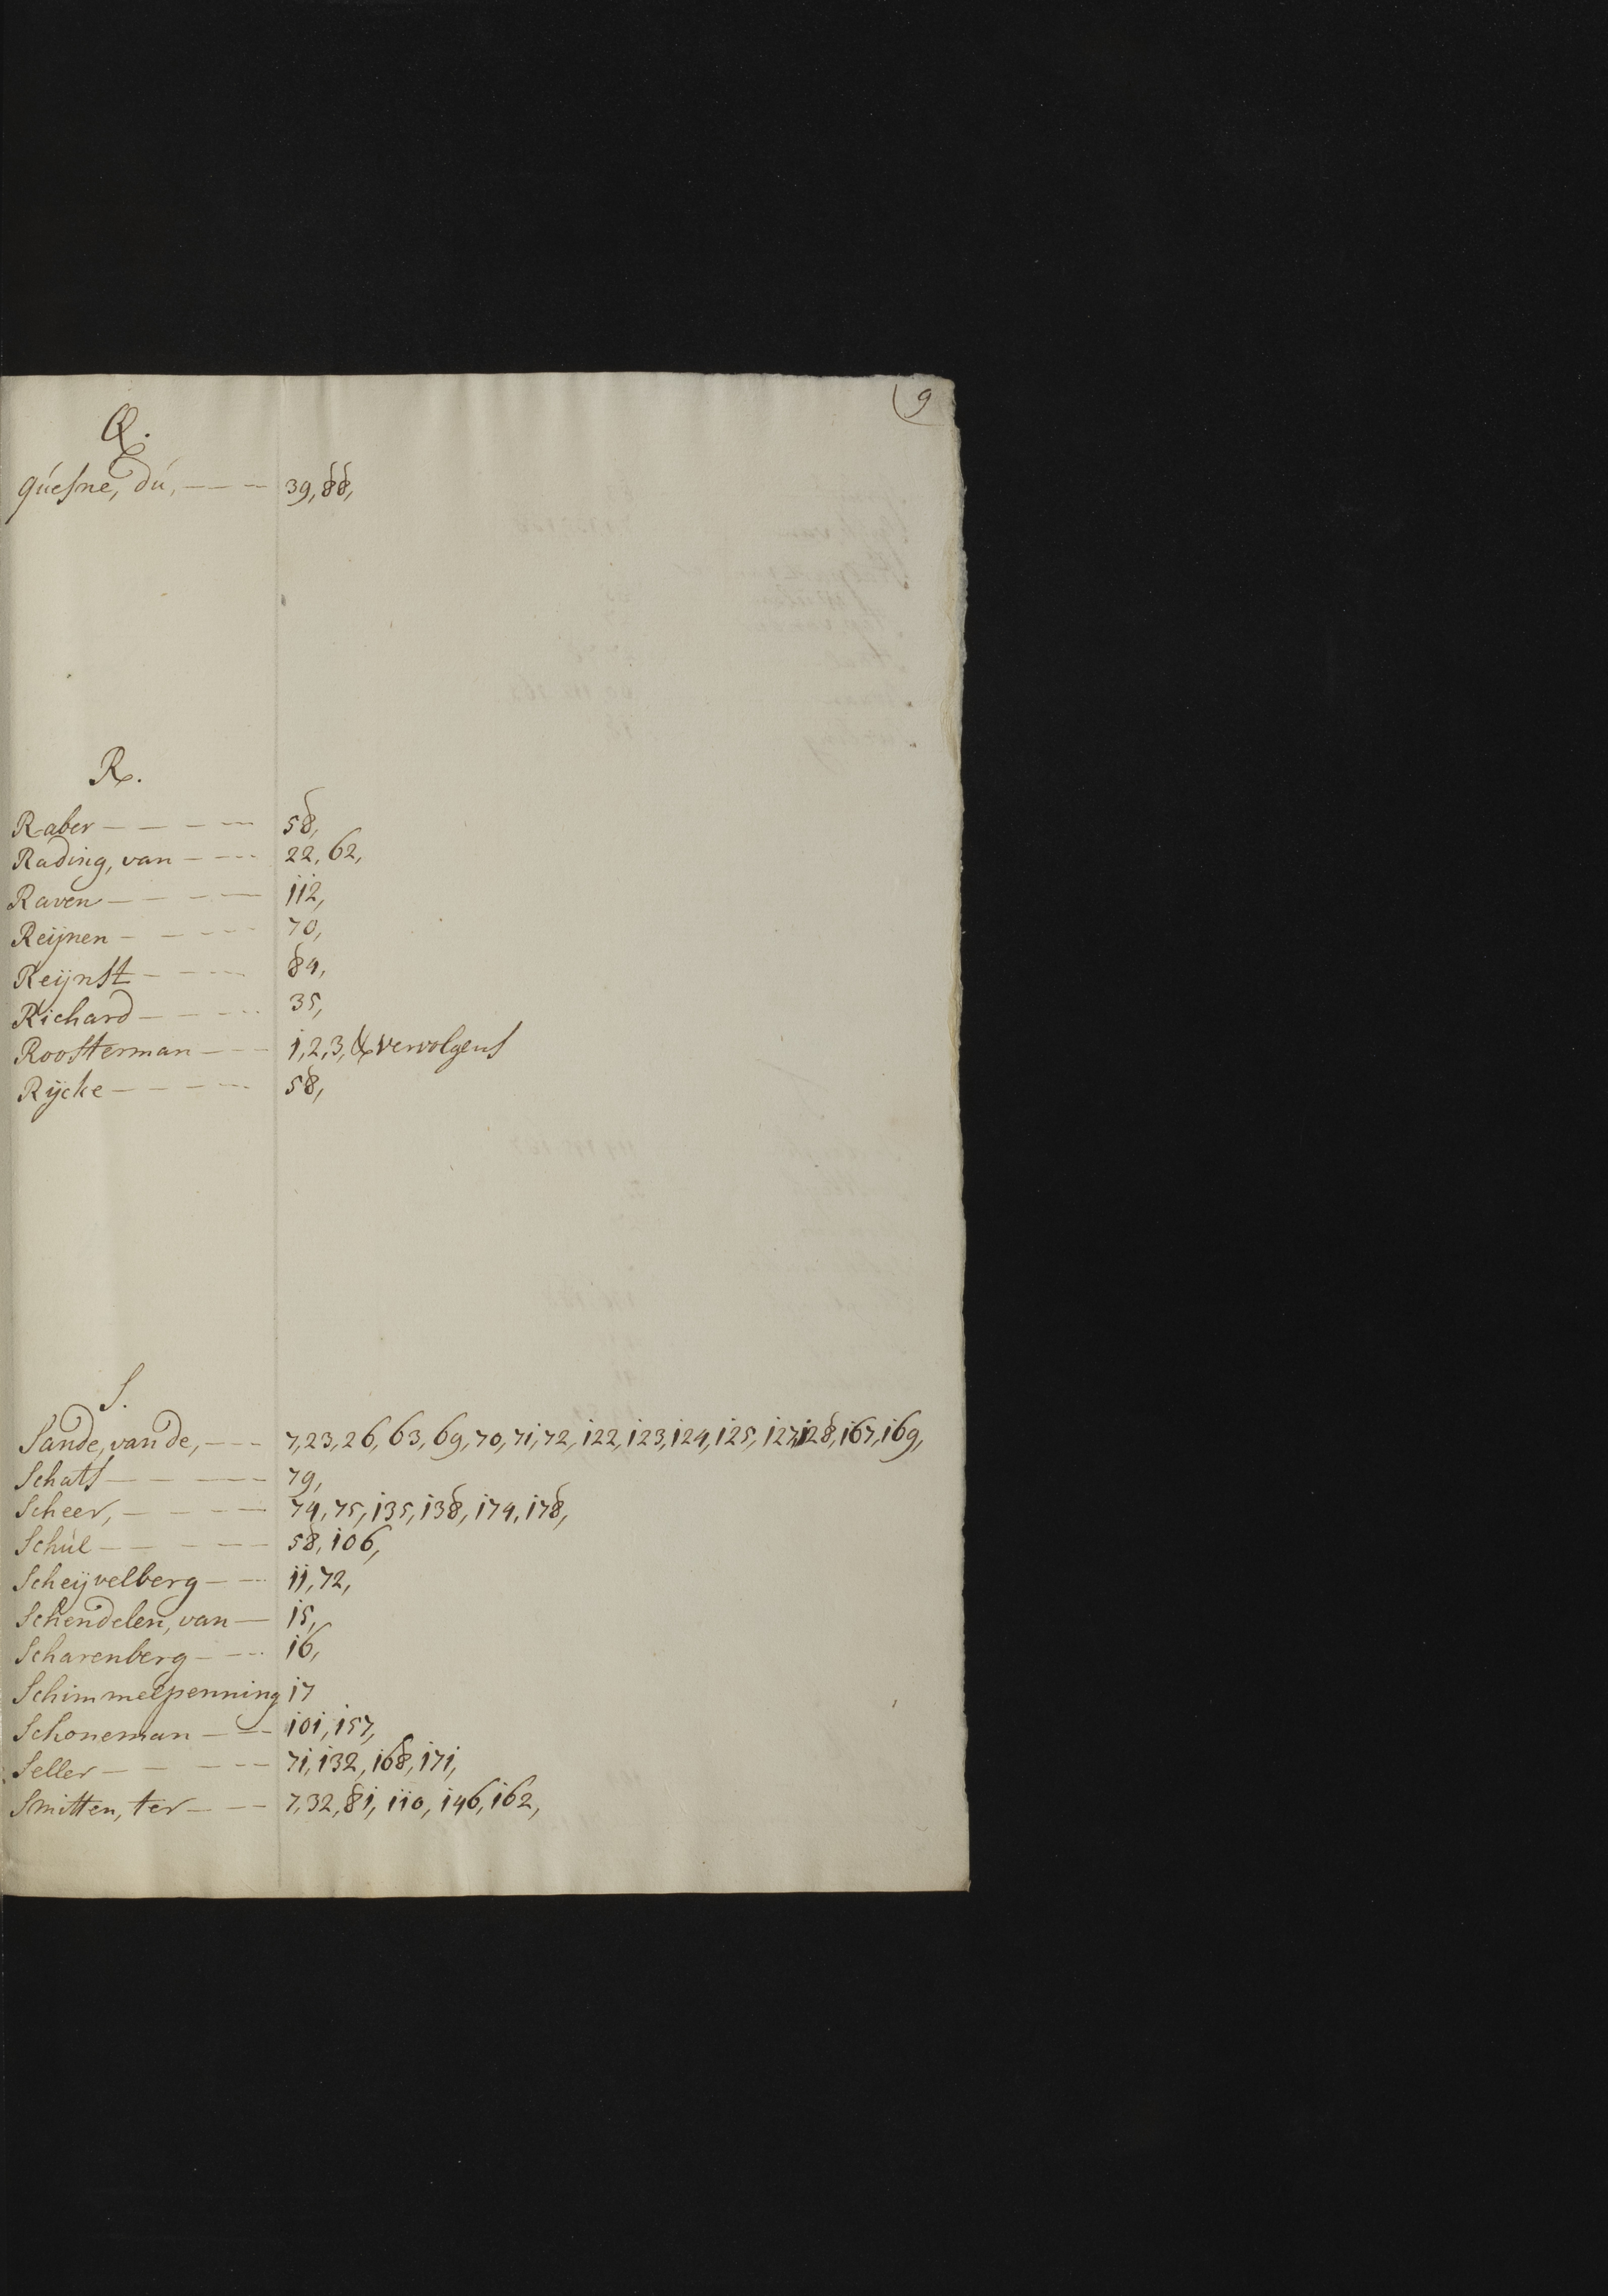 9
Q.
Quesne, du, — — — 39, 88,
R.
Raber — — — — 58,
Rading, van — — — 22, 62,
Raven — — — — 112,
Reijnen — — — — 70,
Reijnst — — — — 84,
Richard — — — — 35,
Roosterman — — — 1, 2, 3, & vervolgens
Rijcke — — — — 58,
S.
Sande, van de, — — — 7, 23, 26, 63, 69, 70, 71, 72, 122, 123, 124, 125, 127, 128, 167, 169,
Schats — — — — 79,
Scheer, — — — — 74, 75, 135, 138, 174, 178,
Schúl — — — — 58, 106,
Scheijvelberg — — — 11, 72,
Schendelen, van — 15,
Scharenberg — — — 16,
Schimmelpenning 17
Schoneman — — — 101, 157,
Seller — — — — 71, 132, 168, 171,
Smitten, ter — — — 7, 32, 81, 110, 146, 162,